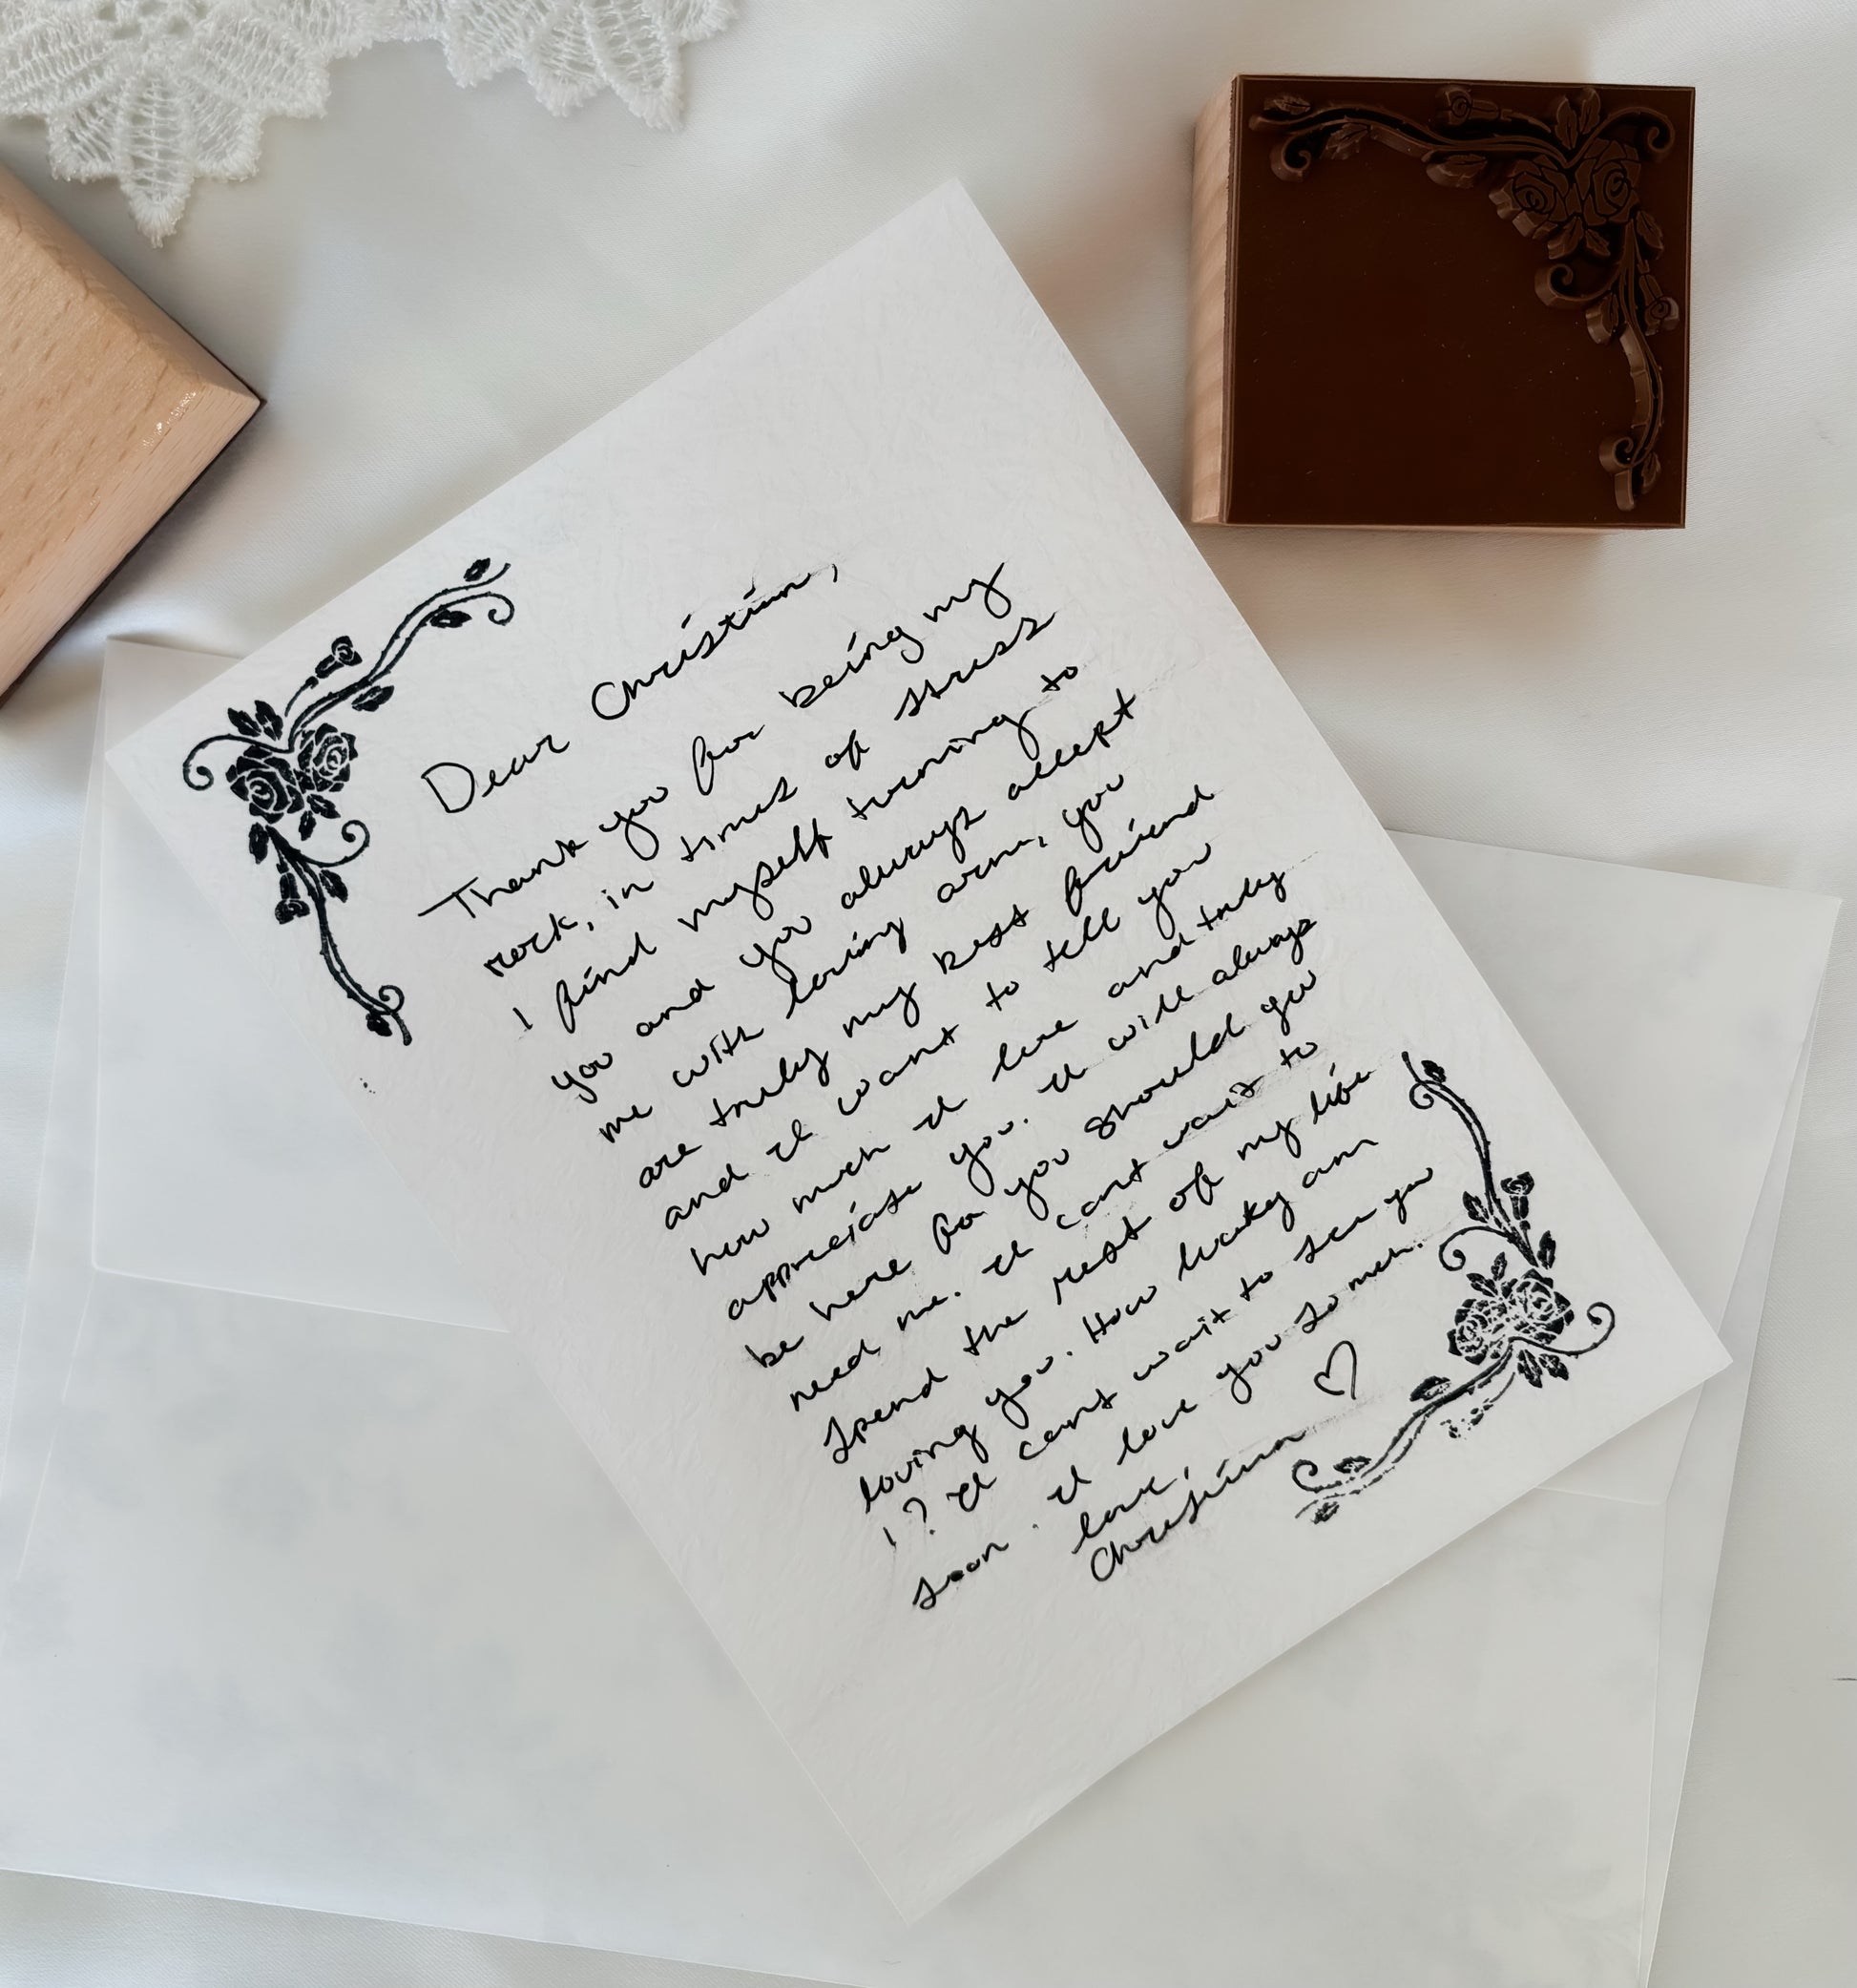 Dear Christian,
Thank you for being my
rock, in times of stress
I find myself turning to
you and you always accept
me with loving arm, you
are truly my best friend
and I want to tell you
how much I love and truly
appreciate you. I will always
be here for you should you
need me. I cant wait to
spend the rest of my life
loving you. How lucky am
I? I cant wait to see you
soon. I love you so much.
love,
Christina ♡